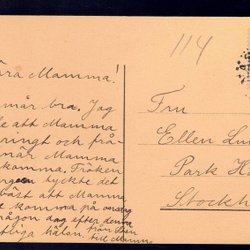 114
ära Mamma!
mår bra. Jag
e att Mamma
ringt och frå-
när Mamma
komma. Fröken
tyckte det
bäst att Mamma
komma på
någon dag efter denna
hälsn. från Ellen
till Mamma
Fru
Ellen Lu
Park Ho
Stockh